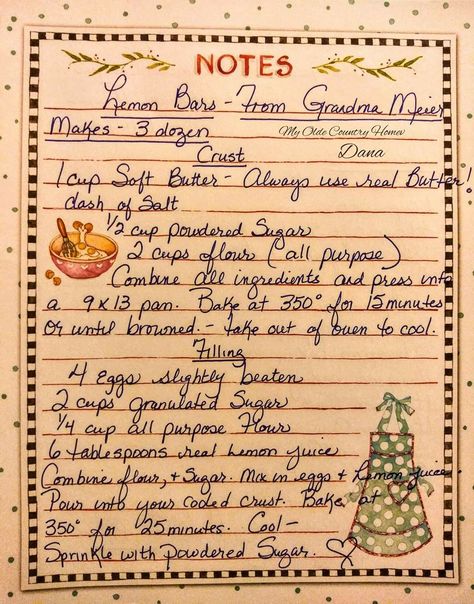 NOTES
Lemon Bars - From Grandma Meier
Makes - 3 dozen
My Olde Country Home
Dana
Crust
1 cup Soft Butter - Always use real Butter!
dash of Salt
1/2 cup powdered Sugar
2 cups flour (all purpose)
Combine all ingredients and press into
a 9x13 pan. Bake at 350° for 15 minutes
or until browned. - take out of oven to cool.
Filling
4 Eggs slightly beaten
2 cups granulated Sugar
1/4 cup all purpose Flour
6 tablespoons real Lemon juice
Combine flour, + Sugar. Mix in eggs + Lemon juice.
Pour into your cooled crust. Bake at
350° for 25 minutes. Cool -
Sprinkle with powdered Sugar.